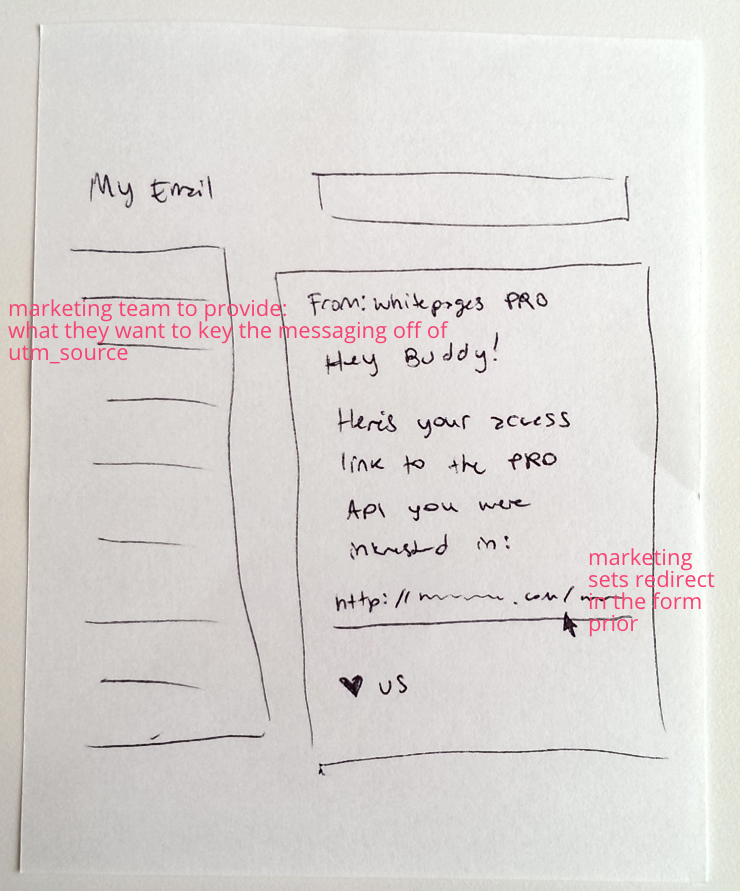 My Email
marketing team to provide:
what they want to key the messaging off of
utm_source
From: whitepages PRO
Hey Buddy!
Here's your access
link to the PRO
API you were
interested in:
http:// .com/
marketing
sets redirect
in the form
prior
♥ US